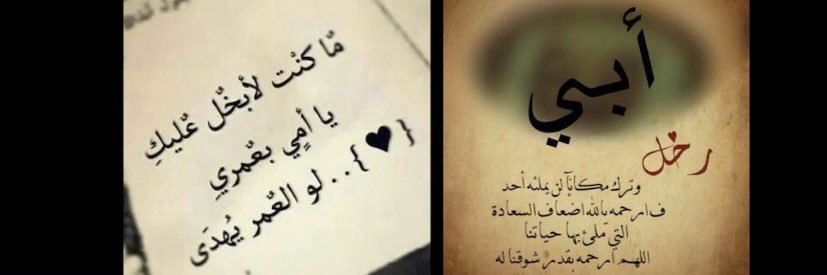 مٌا كنْت لأبخٌل عٌليكِ
يا أمٍي بعٌمريِ
{♥}..لو العٌمر يُهدَى
أبي
رحل
وترك مكانآ لن يملئه أحد
ف ارحمه يالله اضعاف السعادة
التي ملئ بها حياتنا
اللهم ارحمه بقدر شوقنا له